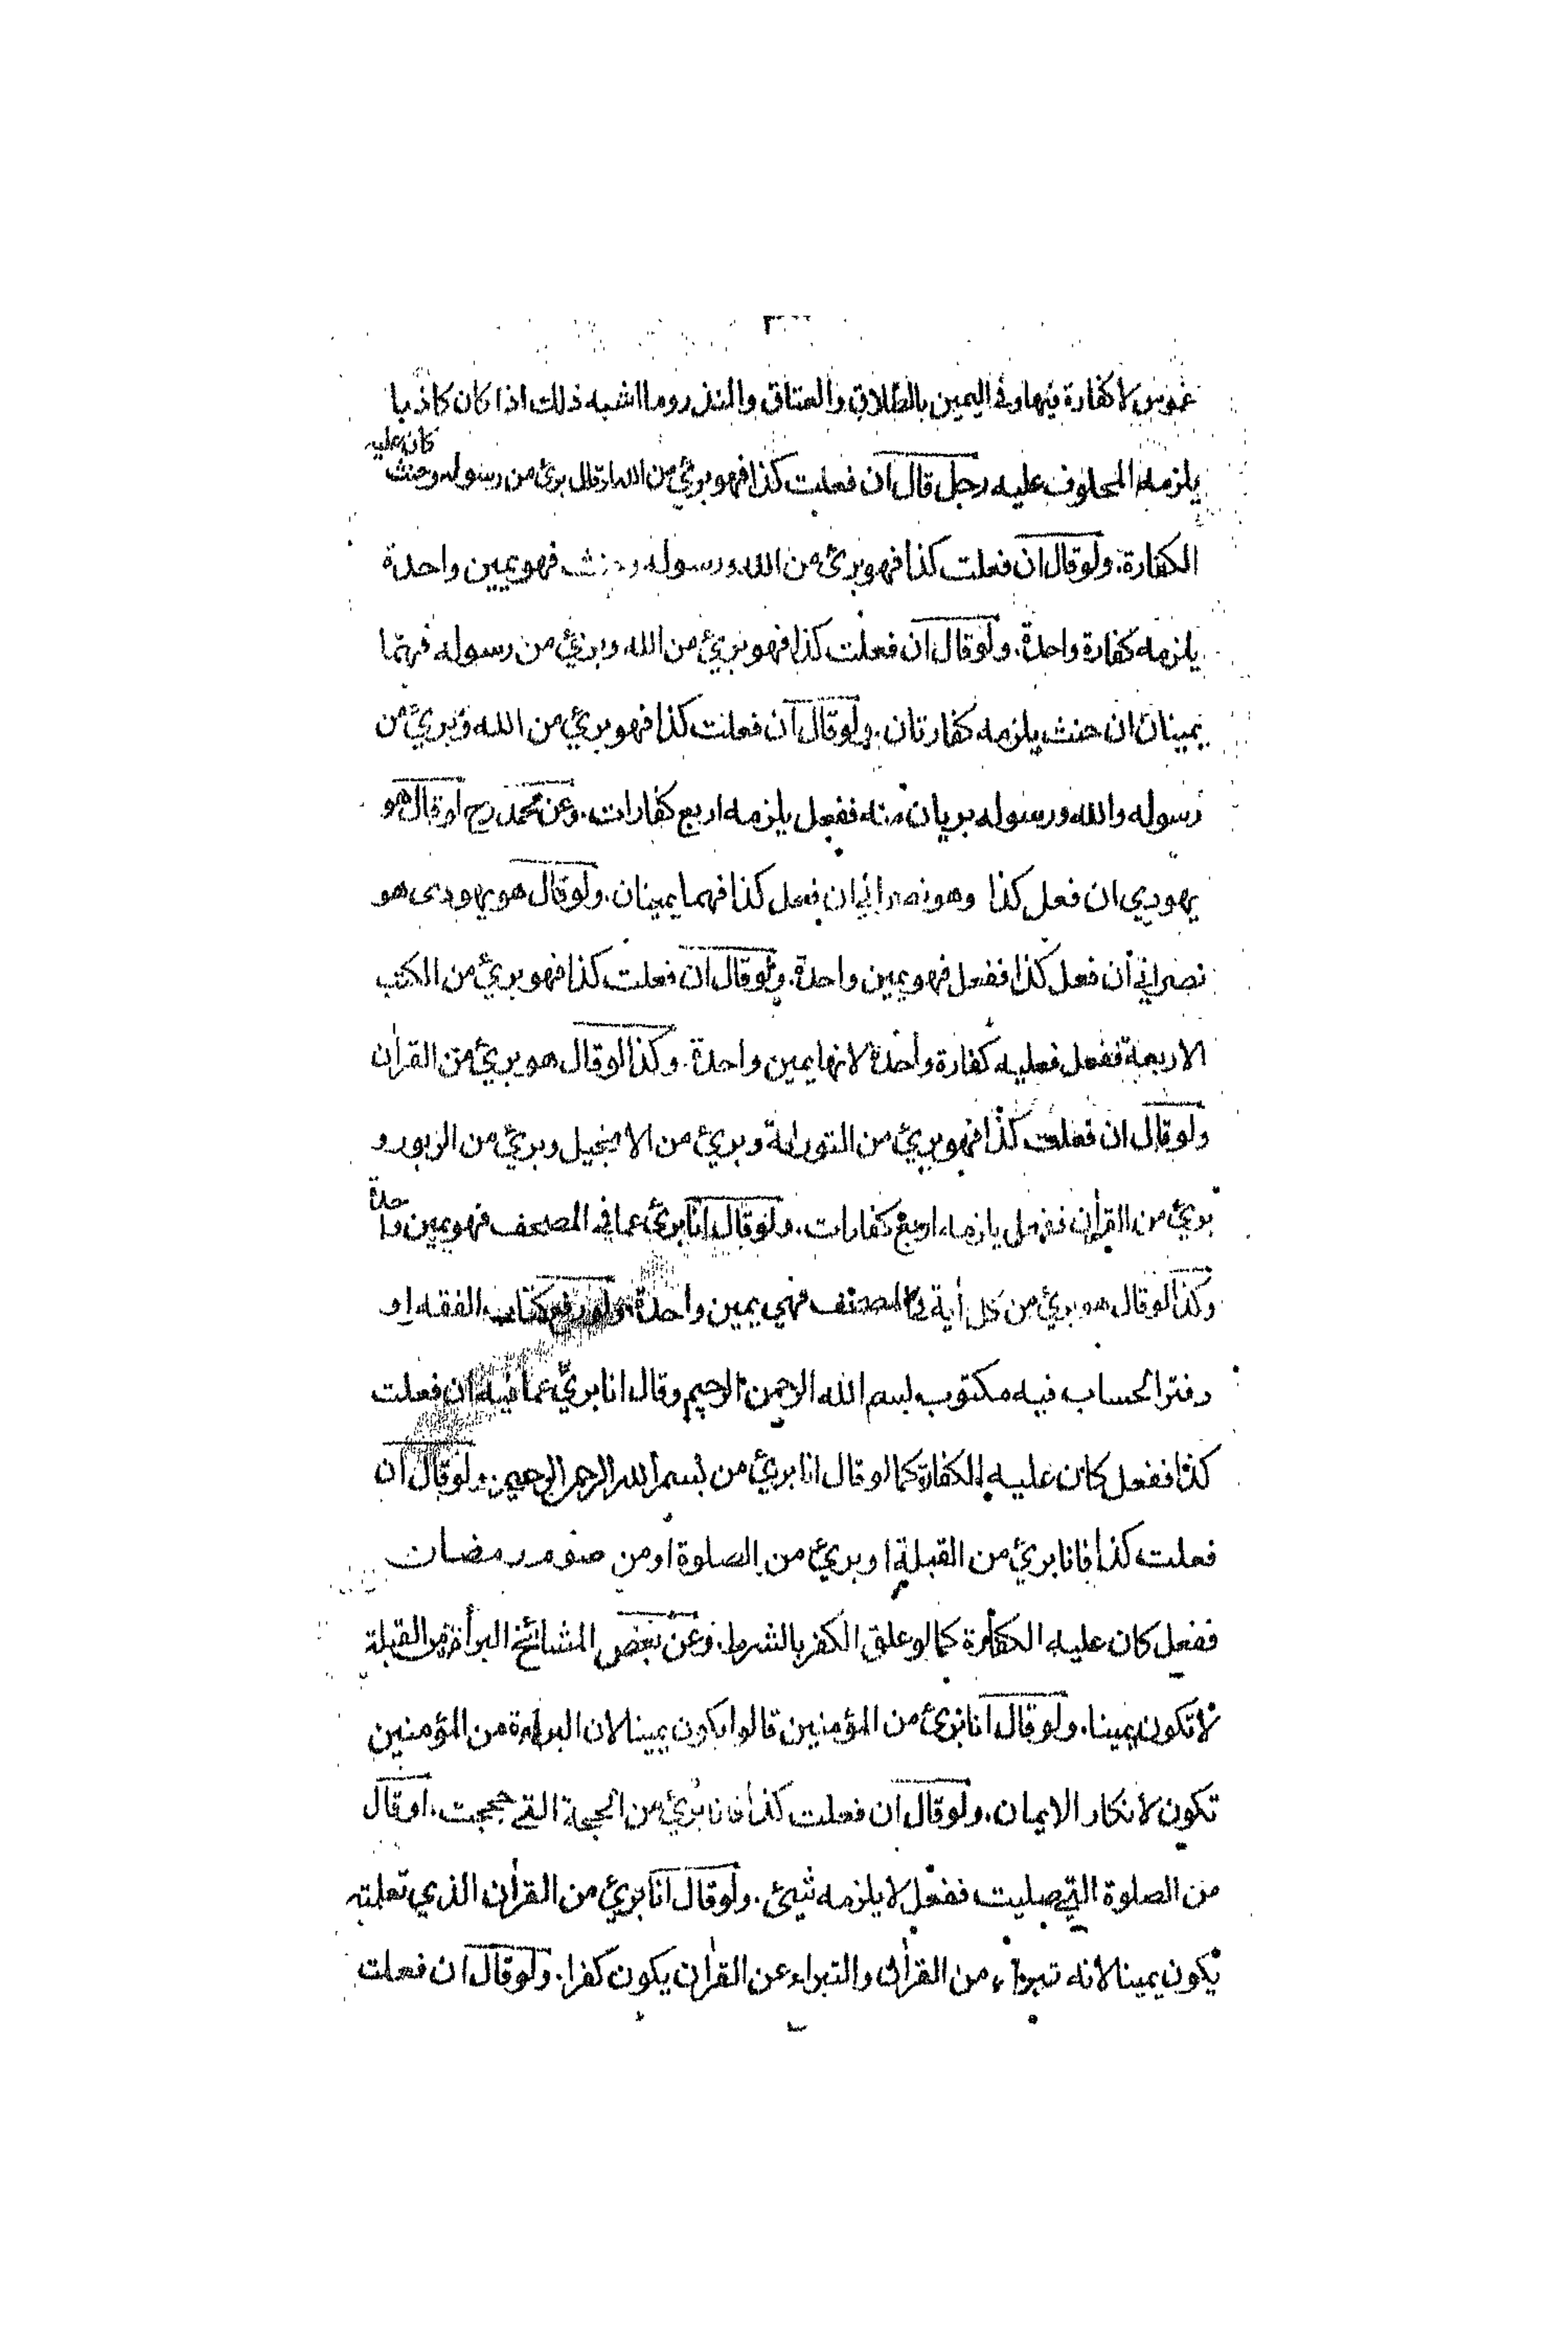 غموس لا كفارة فيها وفي اليمين بالطلاق والعتاق والنذر وما اشبه ذلك اذا كان كاذبا
يلزمه المحلوف عليه رجل قال ان فعلت كذا فهو بريء من الله او قال بريء من رسوله وحنث كان عليه
الكفارة. ولو قال ان فعلت كذا فهو بريء من الله ورسوله وحنث فهو يمين واحدة
يلزمه كفارة واحدة. ولو قال ان فعلت كذا فهو بريء من الله وبريء من رسوله فهما
يمينان ان حنث يلزمه كفارتان. ولو قال ان فعلت كذا فهو بريء من الله وبريء من
رسوله والله ورسوله بريان منه ففعل يلزمه اربع كفارات. وعن محمد رح لو قال هو
يهودي ان فعل كذا وهو نصراني ان فعل كذا فهما يمينان. ولو قال هو يهودى هو
نصراني ان فعل كذا ففعل فهو يمين واحدة. ولو قال ان فعلت كذا فهو بريء من الكتب
الاربعة ففعل فعليه كفارة واحدة لانها يمين واحدة. وكذا لو قال هو بريء من القرأن
ولو قال ان فعلت كذا فهو بريء من التورلة وبريء من الانجيل وبريء من الزبور و
بريء من القرأن ففعل يلزمه اربع كفارات. ولو قال انا بريء عما في المصحف فهو يمين واحدة
وكذا لو قال هو بريء من كل أية في المصحف فهي يمين واحدة. ولو رفع كتاب الفقه او
دفتر الحساب فيه مكتوب بسم الله الرحمن الرحيم وقال انا بريء عما فيه ان فعلت
كذا ففعل كان عليه الكفارة كما لو قال انا بريء من بسم الله الرحمن الرحيم. ولو قال ان
فعلت كذا فانا بريء من القبلة او بريء من الصلوة او من صوم رمضان
ففعل كان عليه الكفارة كما لو علق الكفر بالشرط. وعن بعض المشائخ البرأة من القبلة
لا تكون يمينا. ولو قال انا بريء من المؤمنين قالوا يكون يمينا لان البراءة من المؤمنين
تكون لانكار الايمان. ولو قال ان فعلت كذا فانا بريء من الحجة التي حججت. او قال
من الصلوة التي صليت ففعل لا يلزمه شيئ. ولو قال انا بريء من القرأن الذي تعلمته
يكون يمينا لانه تبراء من القرأن والتبراء عن القرأن يكون كفرا. ولو قال ان فعلت